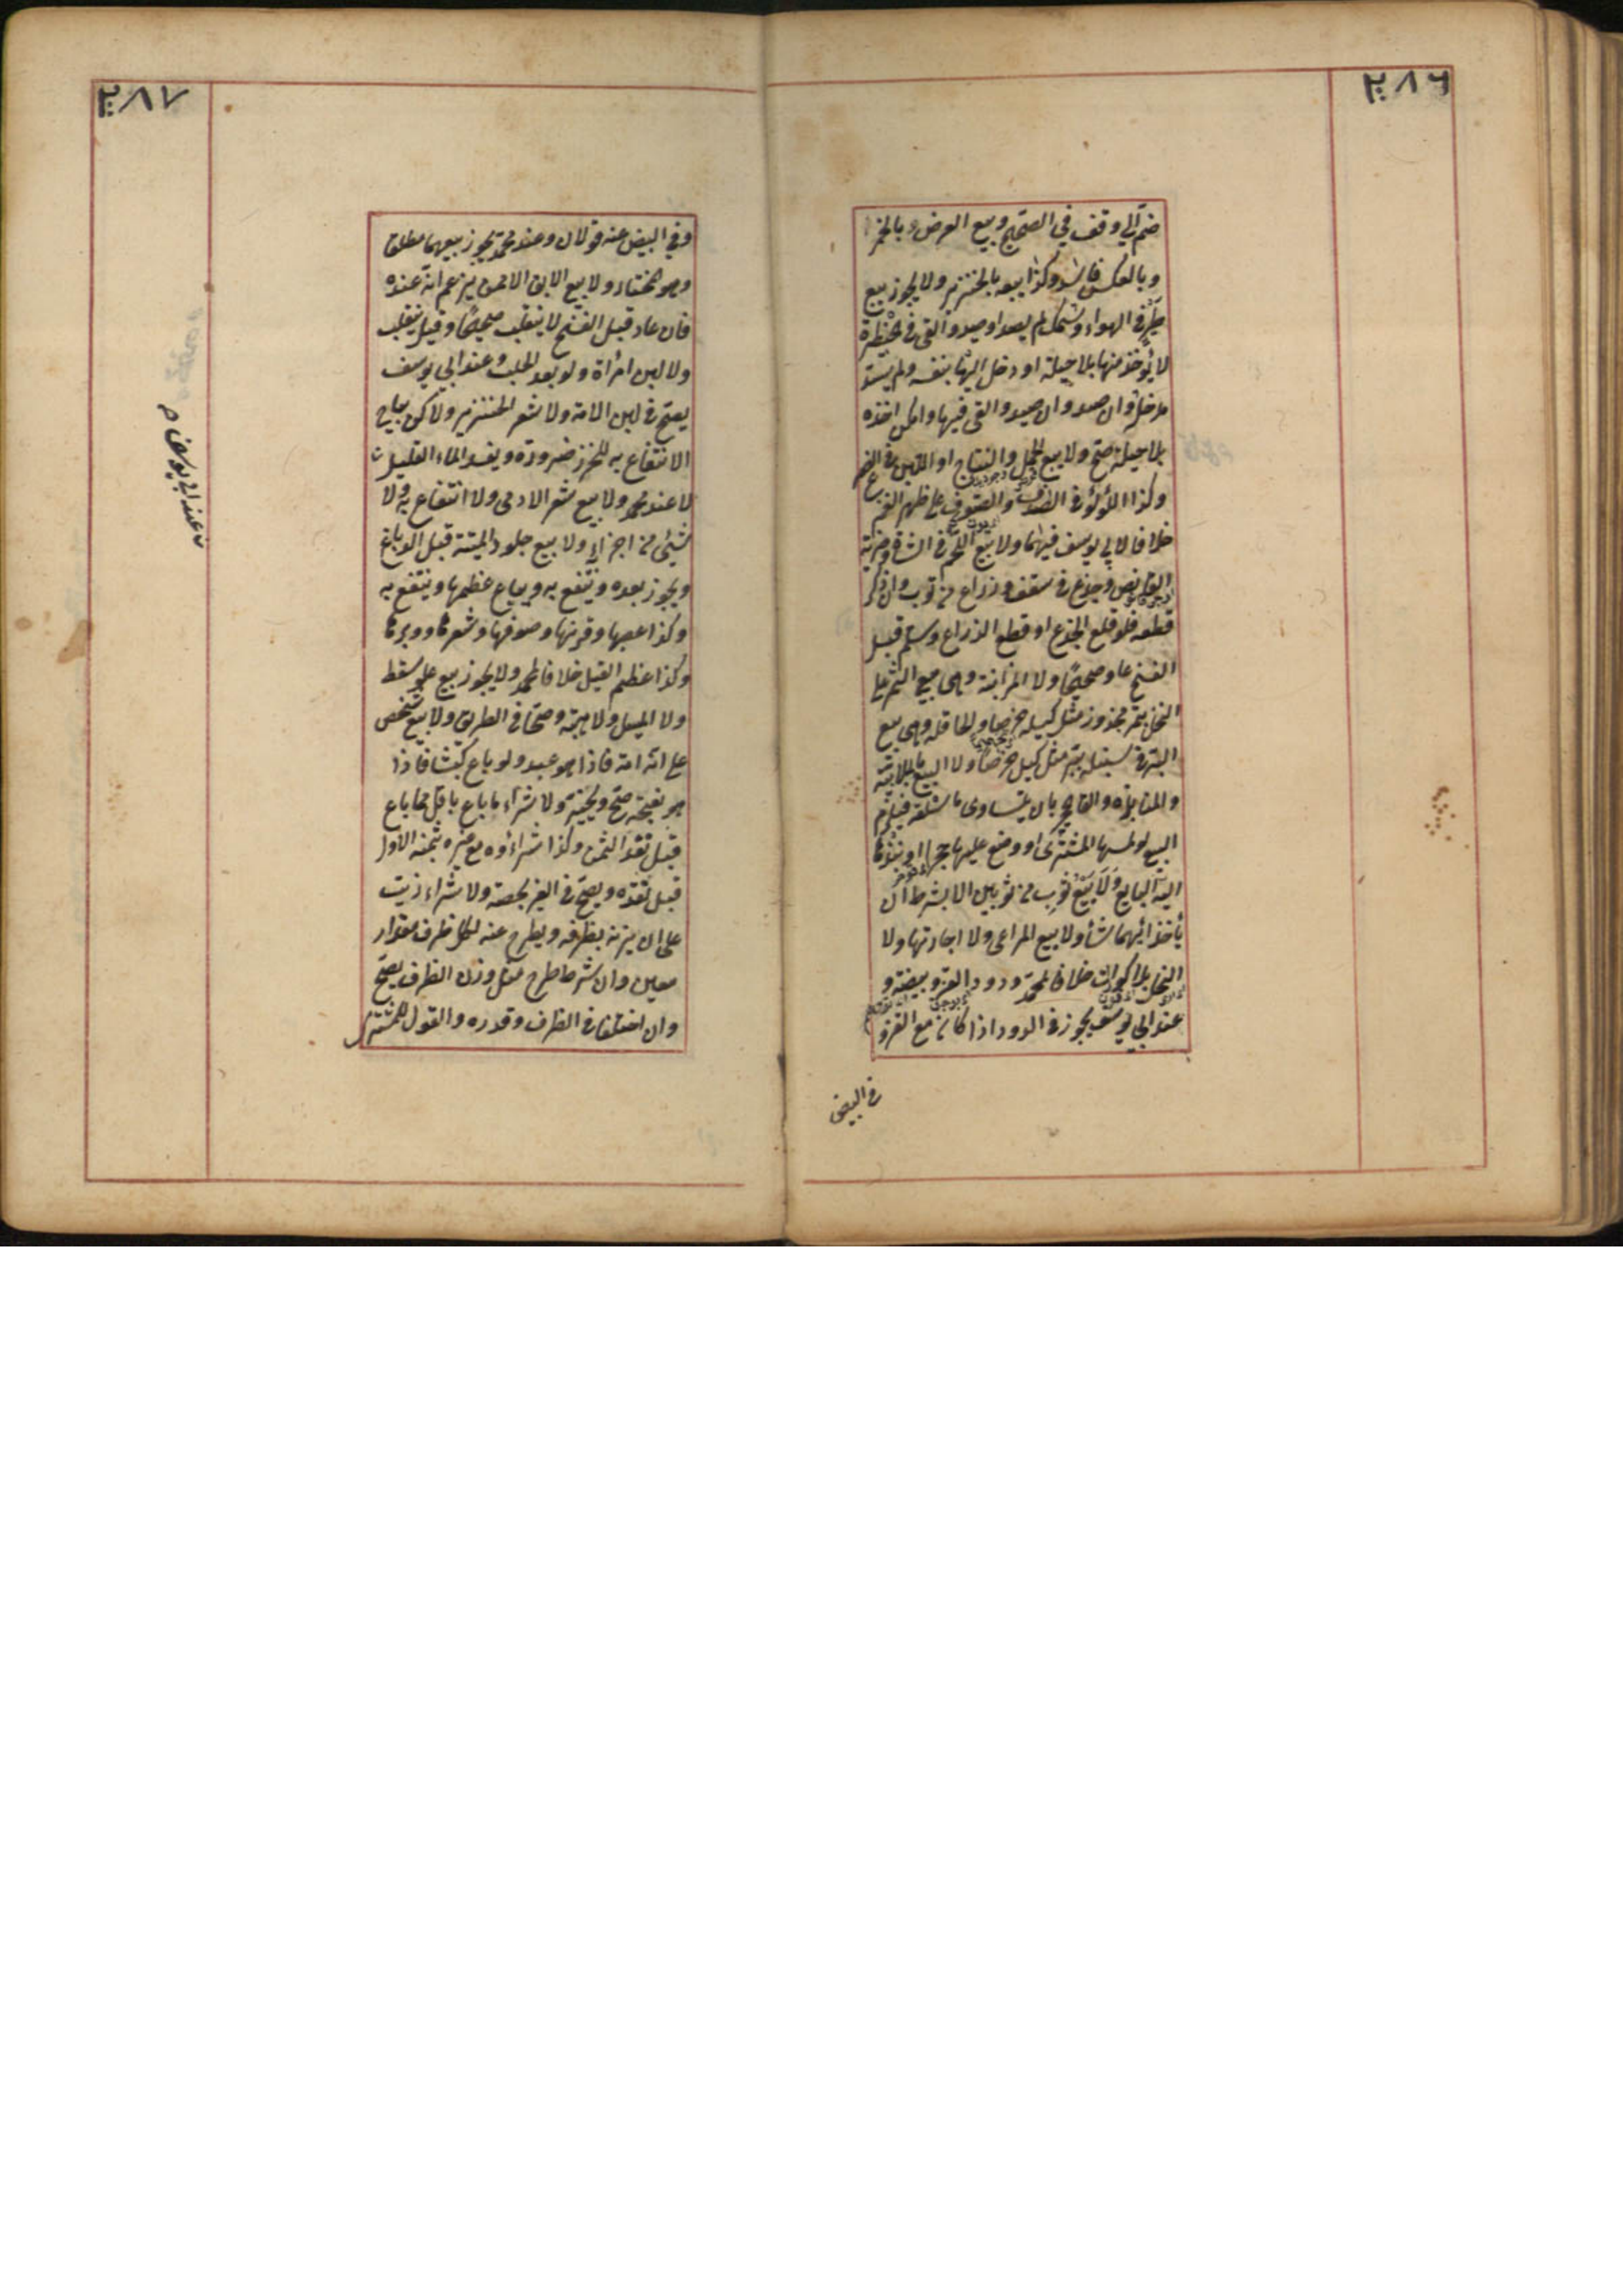 ٢٨٦
ضم الى وقف في الصحيح وبيع العرض بالخمر
وبالعكس فاسد وكذا بيعه بالخنزير ولا يجوز بيع
طير في الهواء وسمك لم يصد او صيد والقى في حظيرة
لا يؤخذ منها بلا حيلة او دخل اليها بنفسه ولم يسد
مدخله وان صيد والقى فيها وامكن اخذه
بلا حيلة صح ولا بيع الحمل والنتاج او اللبن في الضرع
وكذا اللؤلؤ في الصدف والصوف على ظهر الغنم
خلافا لابي يوسف فيهما ولا بيع اللحم في الشاة وضربة
القانص وجذع في سقف وذراع من ثوب وان ذكر
قطعه فلو قلع الجذع او قطع الذراع وسلم قبل
الفسخ عاد صحيحا ولا المزابنة وهى بيع الثمر على
النخل بتمر مجذوذ مثل كيله خرصا والمحاقلة وهى بيع
البر في سنبله ببر مثل كيله خرصا ولا البيع بالملامسة
والمنابذة والقاء الحجر بان يتساوى ما سلعة فيلزم
البيع لو لمسها المشترى او وضع عليها حجرا او نبذها
اليه البايع ولا بيع ثوب من ثوبين الا بشرط ان
يأخذ ايهما شأ ولا بيع المراعى ولا اجارتها ولا
النحل بلا كوارات خلافا لمحمد ودود القز وبيضه و
عند ابي يوسف يجوز في الدود اذا كان مع القز و
في البيض
٢٨٧
وفي البيض عنه قولان وعند محمد يجوز بيعهما مطلقا
وهو المختار ولا بيع الابق الا ممن يزعم انه عنده
فان عاد قبل الفسخ لا ينقلب صحيحا وقيل ينقلب
ولا لبن امرأة ولو بعد الحلب وعند ابي يوسف
يصح في لبن الامة ولا شعر الخنزير ولا كن يباح
الانتفاع به للخرز ضرورة ويفسد الماء القليل
لا عند محمد ولا بيع شعر الادمى ولا انتفاع به ولا
شيئ من اجزائه ولا بيع جلود الميتة قبل الدباغ
ويجوز بعده وينتفع به ويباع عظمها وينتفع به
وكذا عصبها وقرنها وصوفها وشعرها ووبرها
وكذا عظم الفيل خلافا لمحمد ولا يجوز بيع علو سقط
ولا المسيل ولا هبته وصحا في الطريق ولا بيع شخص
على انه امة فاذا هو عبد ولو باع كبشا فاذا
هو نعجة صح ويخير ولا شراء ما باع باقل مما باع
قبل نقد الثمن وكذا شراؤه مع غيره بثمنه الاول
قبل نقده ويصح في الغير بحصته ولا شراء زيت
على ان يزنه بظرفه ويطرح عنه لكل ظرف مقدار
معين وان شرط طرح مثل وزن الظرف يصح
وان اختلفا في الظرف وقدره والقول للمشترى
عند ابي يوسف